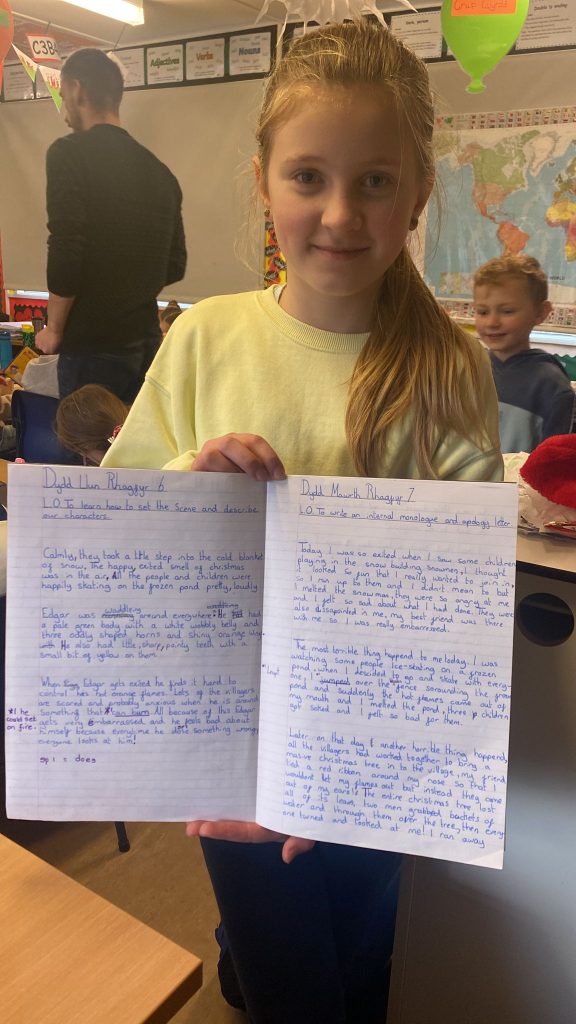 C3B
Adjectives
Verbs
Nouns
Dydd Llun Rhagfyr 6
L.O. To learn how to set the scene and describe
our characters.
Calmly, they took a little step into the cold blanket
of snow, The happy, exited smell of christmas
was in the air, All the people and children were
happily skating on the frozen pond pretty loudly
waddling
Edgar was around everywhere. He had
a pale green body with a white wobbly belly and
three oddly shaped horns and shiny orange
He also had little, sharp, pointy teeth with a
small bit of yellow on them.
When Edgar gets exited he finds it hard to
control his hot orange flames. Lots of the villagers
are scared and probably anxious when he is around
something that *can burn. All because of this Edgar
gets very embarrassed and he feels bad about
himself because everytime he dose something wrong,
everyone looks at him!
*he
could set
on fire.
sp : = does
Dydd Mawrth Rhagfyr 7
L.O. To write an internal monologue and apology letter
Today I was so exited when I saw some children
playing in the snow building snowmen, I thought
it looked so fun that I really wanted to join in,
so I ran up to them and I didn't mean to but
I melted the snowman, they were so angry at me
and I felt so sad about what I had done. They were
also dissapointed in me, my best friend was there
with me so I was really embarrized.
The most terrible thing happend to me today. I was
watching some people ice-skating on a frozen
pond when I decided to go and skate with every-
one, I *jumped over the fence sorounding the frozen
pond and suddenly the hot flames came out of
my mouth and I melted the pond, three children
got soked and I felt so bad for them.
*leapt
Later on that day another horrible thing happend,
all the villagers had worked together to bring a
massive christmas tree in to the village, my friend
tied a red ribbon around my nose so that I
wouldent let my flames out but instead they came
out of my ears! The entire christmas tree lost
all of its leavs, two men grabbed buckets of
water and through them over the tree, then every
one turned and looked at me! I ran away